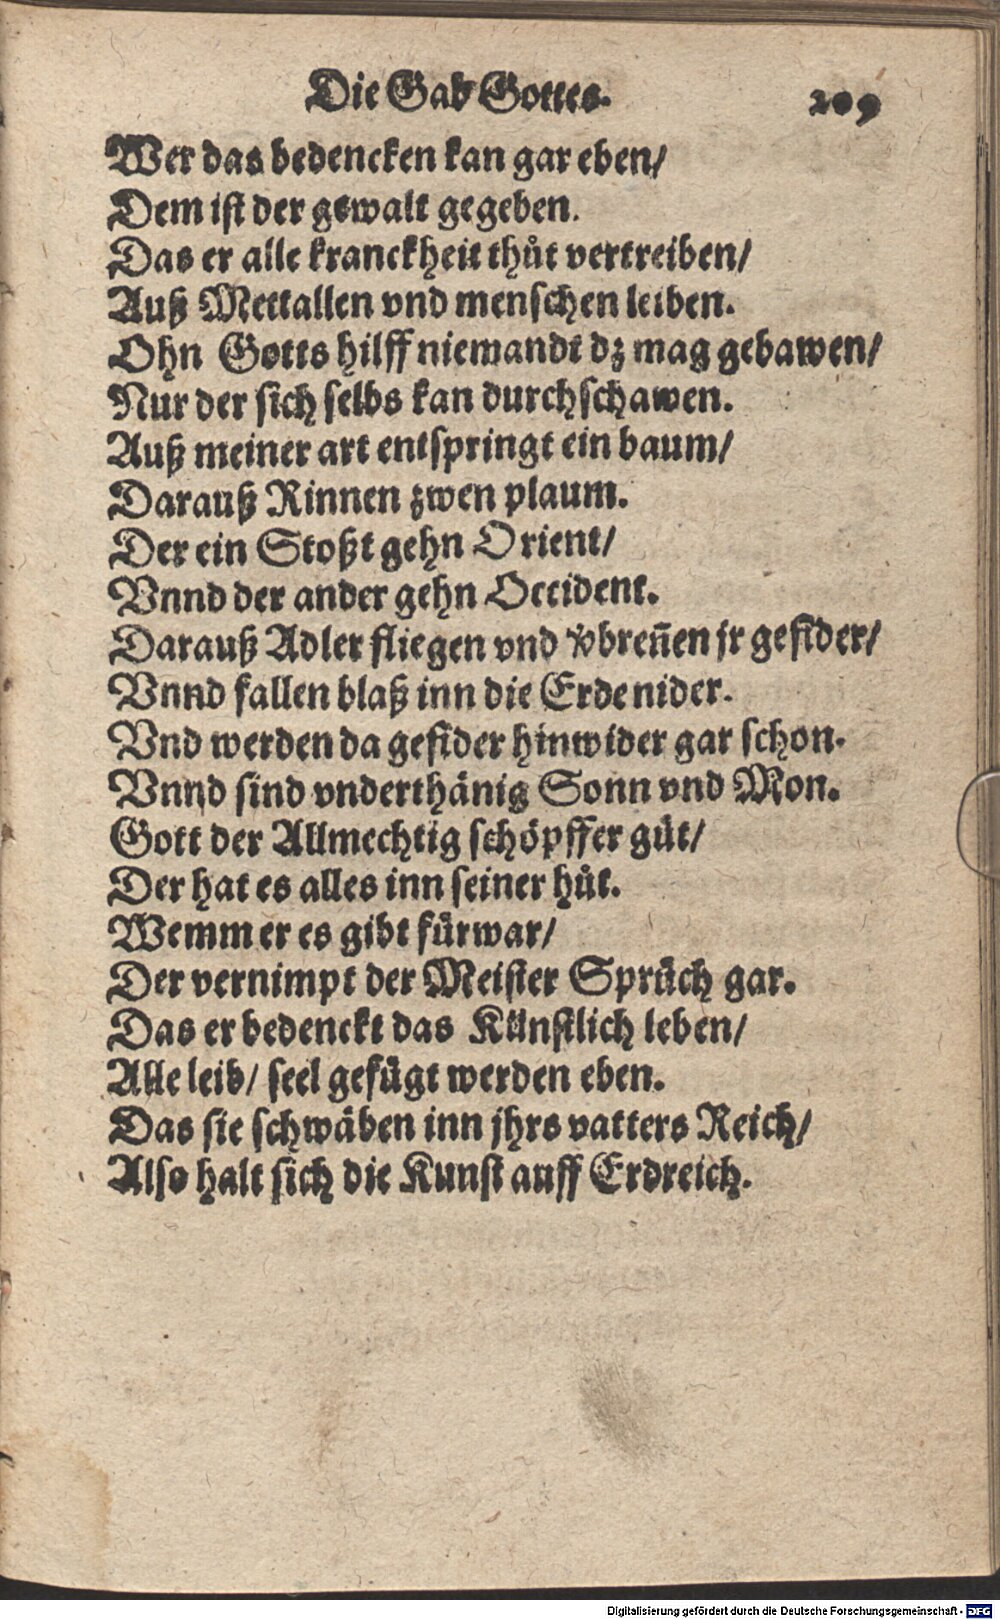 Die Gab Gottes. 209
Wer das bedencken kan gar eben/
Dem ist der gewalt gegeben.
Das er alle kranckheit thůt vertreiben/
Auß Mettallen vnd menschen leiben.
Ohn Gotts hilff niemandt dz mag gebawen/
Nur der sich selbs kan durchschawen.
Auß meiner art entspringt ein baum/
Darauß Rinnen zwen plaum.
Der ein Stoßt gehn Orient/
Vnnd der ander gehn Occident.
Darauß Adler fliegen vnd vbreñen jr gefider/
Vnnd fallen blaß inn die Erde nider.
Vnd werden da gefider hinwider gar schon.
Vnnd sind vnderthänig Sonn vnd Mon.
Gott der Allmechtig schöpffer gůt/
Der hat es alles inn seiner hůt.
Wemm er es gibt fürwar/
Der vernimpt der Meister Sprüch gar.
Das er bedenckt das Künstlich leben/
Alle leib/ seel gefügt werden eben.
Das sie schwäben inn jhrs vatters Reich/
Also halt sich die Kunst auff Erdreich.
Digitalisierung gefördert durch die Deutsche Forschungsgemeinschaft - DFG